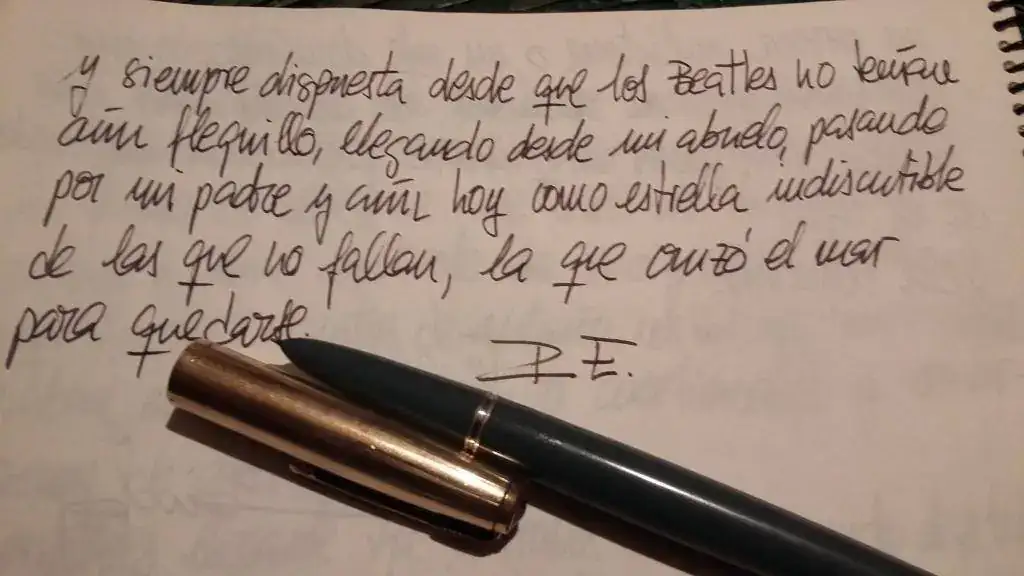 y siempre dispuesta desde que los Beatles no tenían
aún flequillo, llegando desde mi abuelo, pasando
por mi padre y aún hoy como estrella indiscutible
de las que no fallan, la que cruzó el mar
para quedarse.
R.E.